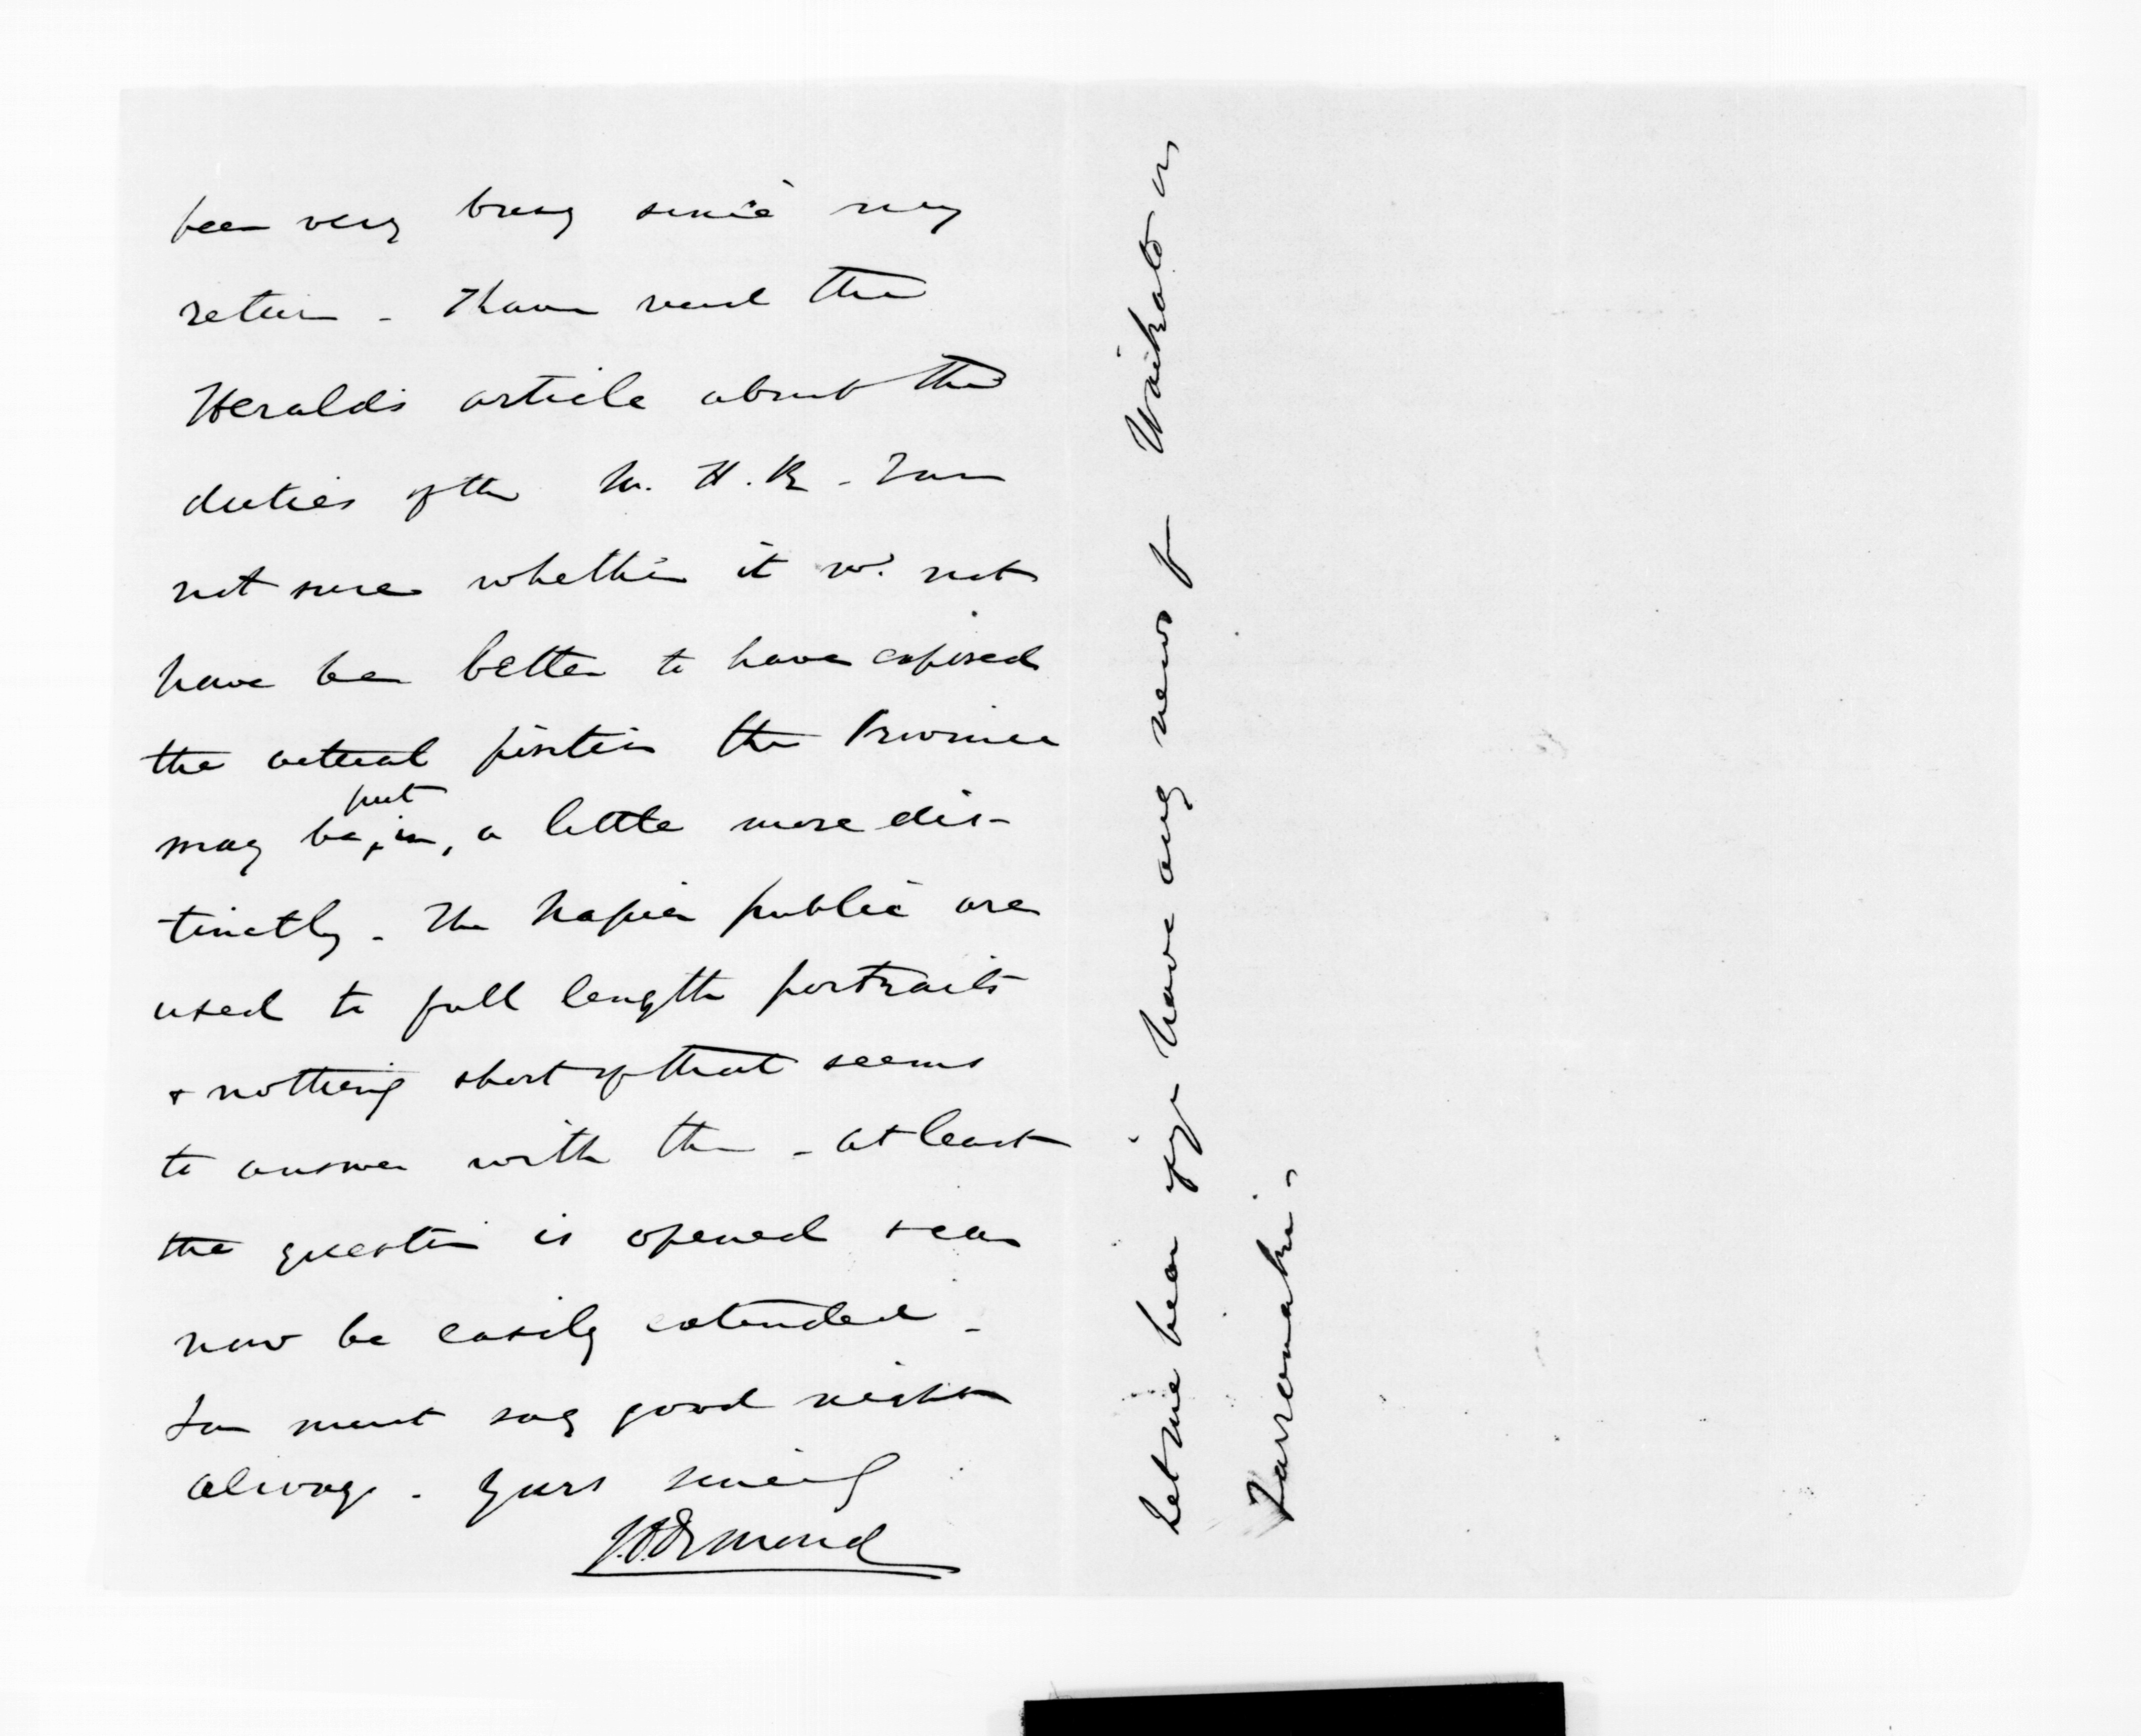 been very busy since my
return - I have read the
Heralds article about the
duties of the M. H. R - I am
not sure whether it wd. not
have been better to have exposed
the actual position the Province
may be, put in, a little more dis-
tinctly - The Napier public are
used to full length portraits
& nothing short of that seems
to answer with them - at least
the question is opened & can
now be easily extended -
I must say good night
always - Yours sincerely
J.D. Ormond
Let me hear if you have any news fm Waikato or
Tarranaki -